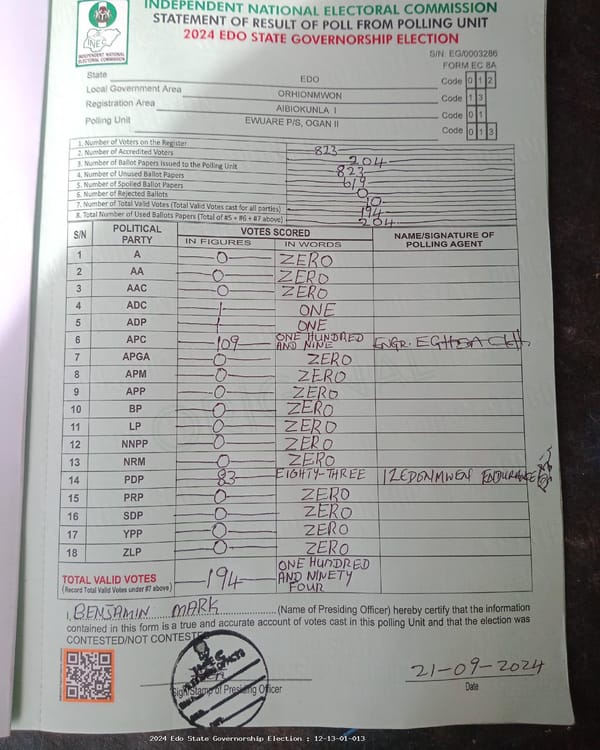 INDEPENDENT NATIONAL ELECTORAL COMMISSION
STATEMENT OF RESULT OF POLL FROM POLLING UNIT
2024 EDO STATE GOVERNORSHIP ELECTION
INEC
INDEPENDENT NATIONAL ELECTORAL COMMISSION
S/N: EG/0003286
FORM EC 8A
State EDO Code 0 1 2
Local Government Area ORHIONMWON Code 1 3
Registration Area AIBIOKUNLA I Code 0 1
Polling Unit EWUARE P/S, OGAN II Code 0 1 3
1. Number of Voters on the Register 823
2. Number of Accredited Voters 204
3. Number of Ballot Papers Issued to the Polling Unit 823
4. Number of Unused Ballot Papers 619
5. Number of Spoiled Ballot Papers 0
6. Number of Rejected Ballots 10
7. Number of Total Valid Votes (Total Valid Votes cast for all parties) 194
8. Total Number of Used Ballots Papers (Total of #5 + #6 + #7 above) 204
S/N POLITICAL PARTY VOTES SCORED NAME/SIGNATURE OF POLLING AGENT
IN FIGURES IN WORDS
1 A 0 ZERO
2 AA 0 ZERO
3 AAC 0 ZERO
4 ADC 1 ONE
5 ADP 1 ONE
6 APC 109 ONE HUNDRED AND NINE ENGR.
7 APGA 0 ZERO
8 APM 0 ZERO
9 APP 0 ZERO
10 BP 0 ZERO
11 LP 0 ZERO
12 NNPP 0 ZERO
13 NRM 0 ZERO
14 PDP 83 EIGHTY-THREE IZEDONMWEN ENDURANCE
15 PRP 0 ZERO
16 SDP 0 ZERO
17 YPP 0 ZERO
18 ZLP 0 ZERO
TOTAL VALID VOTES 194 ONE HUNDRED AND NINETY FOUR
(Record Total Valid Votes under #7 above)
I, BENJAMIN MARK (Name of Presiding Officer) hereby certify that the information
contained in this form is a true and accurate account of votes cast in this polling Unit and that the election was
CONTESTED/NOT CONTESTED
21-09-2024
Sign/Stamp of Presiding Officer Date
2024 Edo State Governorship Election : 12-13-01-013